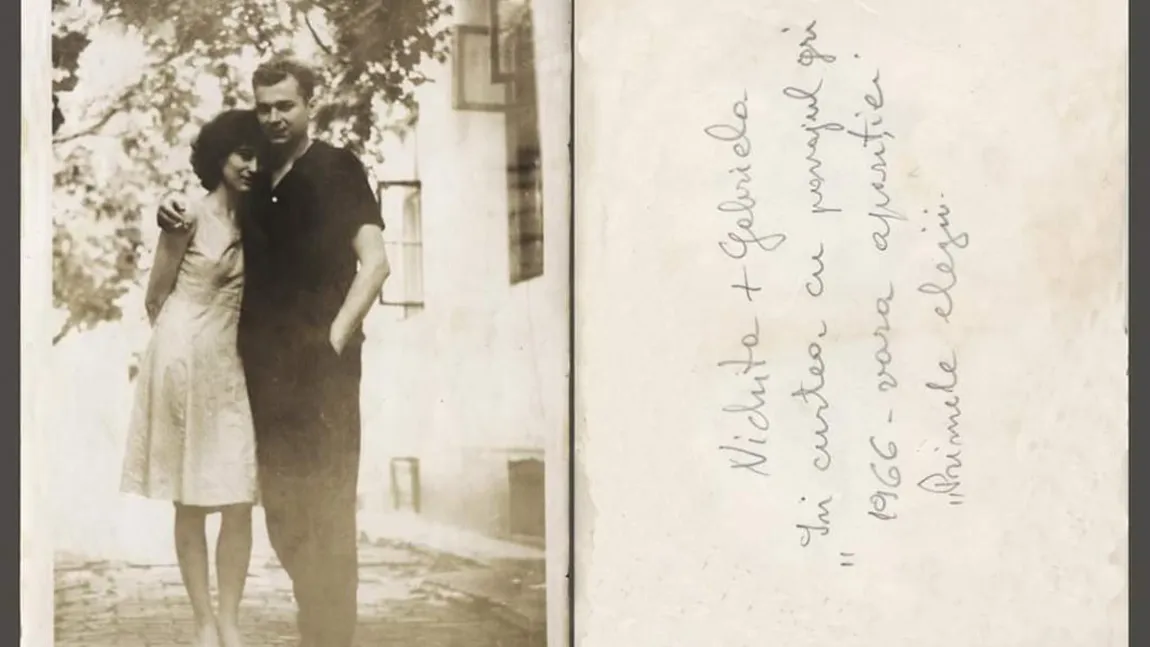 Nichita + Gabriela
"În curtea cu pavajul gri
1966 - vara apariției
"Primele elegii.